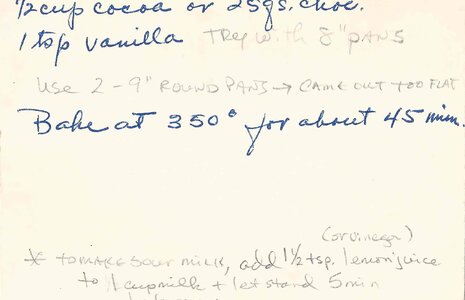 1/2 cup cocoa or 2 sqs. choc.
1 tsp vanilla TRY with 8" PANS
Use 2 - 9" ROUND PANS → CAME OUT TOO FLAT
Bake at 350° for about 45 min.
(or vinegar)
* TO MAKE SOUR MILK, add 1 1/2 tsp. lemon juice
to 1 cup milk + let stand 5 min